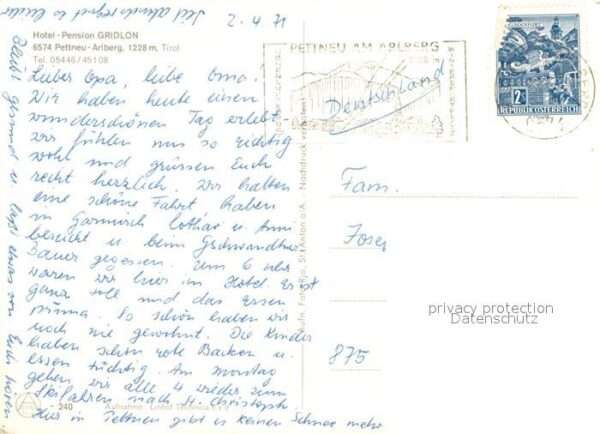 2.4.71
Hotel - Pension GRIDLON
6574 Pettneu - Arlberg, 1228 m, Tirol
Tel. 05446/45108
Lieber Opa, liebe Oma!
Wir haben heute einen
wunderschönen Tag erlebt
wir fühlen uns so richtig
wohl und grüssen Euch
recht herzlich. Wir hatten
eine schöne Fahrt haben
in Garmisch Lothar u. Anni
besucht u. beim Gschwandtner
Bauer gegessen. Um 6 Uhr
waren wir hier im Hotel. Es ist
ganz toll und das Essen
prima. So schön haben wir
noch nie gewohnt. Die Kinder
haben schon rote Backen u.
essen tüchtig. Am Montag
gehen wir alle 4 wieder zum
Skifahren nach St. Christoph.
Hier in Pettneu gibt es keinen Schnee mehr
Bleibt gesund u. laßt etwas von Euch hören
PETTNEU AM ARLBERG
Deutschland
2 S
REPUBLIK ÖSTERREICH
Fam.
Josef
875
privacy protection
Datenschutz
240